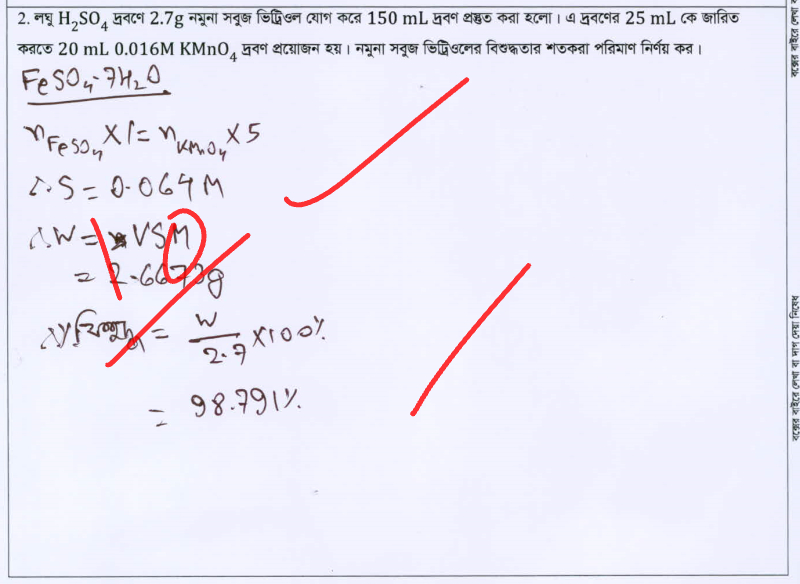 2. লঘু H₂SO₄ দ্রবণে 2.7g নমুনা সবুজ ভিট্রিওল যোগ করে 150 mL দ্রবণ প্রস্তুত করা হলো। এ দ্রবণের 25 mL কে জারিত
করতে 20 mL 0.016M KMnO₄ দ্রবণ প্রয়োজন হয়। নমুনা সবুজ ভিট্রিওলের বিশুদ্ধতার শতকরা পরিমাণ নির্ণয় কর।
FeSO₄·7H₂O
n FeSO₄ × 1 = n KMnO₄ × 5
∴ S = 0.064 M
∴ W = VSM
= 2.6673g
= W/2.7 × 100%
= 98.791%
বক্সের বাইরে লেখা বা দাগ দেয়া নিষেধ